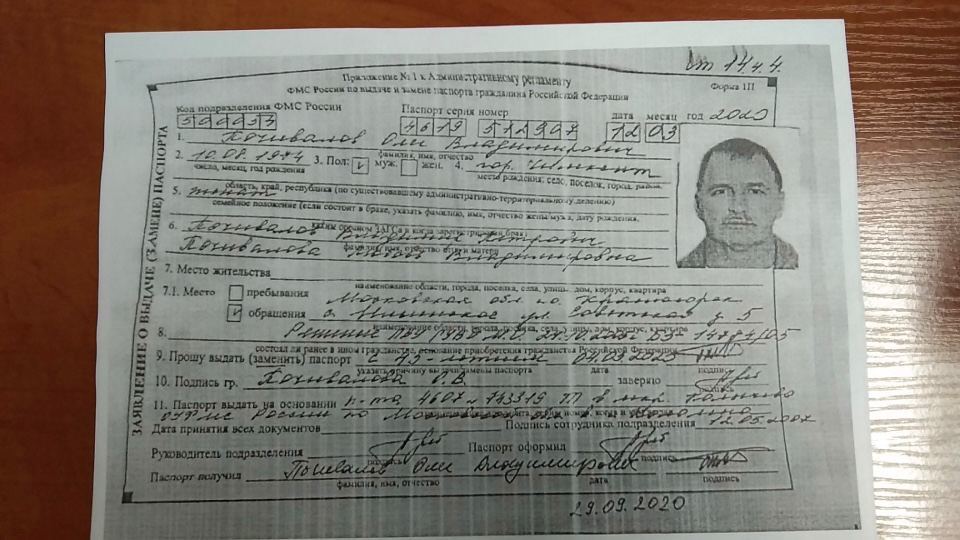 от 14.ч.4.
Приложение № 1 к Административному регламенту
ФМС России по выдаче и замене паспорта гражданина Российской Федерации
Форма 1П
Код подразделения ФМС России
Паспорт серия номер
дата месяц год 2020
4619 512997 12 03
1. Почивалов Олег Владимирович
фамилия, имя, отчество
2. 10.08.1974 3. Пол: муж. жен. 4. гор. Чимкент
число, месяц, год рождения
место рождения: село, поселок, город, район,
область, край, республика (по существовавшему административно-территориальному делению)
5. женат
семейное положение (если состоит в браке, указать фамилию, имя, отчество жены/мужа, дату рождения,
каким органом ЗАГСа и когда зарегистрирован брак)
6. Почивалов Владимир Петрович
Почивалова Владимировна
фамилия, имя, отчество отца и матери
7. Место жительства
наименование области, города, поселка, села, улицы, дом, корпус, квартира
7.1. Место пребывания
обращения
Московская обл. г.о. Красногорск
ул. Советская д. 5
наименование области, города, поселка, села, улицы, дом, корпус, квартира
8. Решение
состоял ли ранее в ином гражданстве, основание приобретения гражданства Российской Федерации
9. Прошу выдать (заменить) паспорт с 45-летием
указать причину выдачи/замены паспорта
дата
подпись
10. Подпись гр. Почивалова О.В. заверяю
подпись
11. Паспорт выдать на основании п-та 4607 № 143319 ТП в
ОУФМС России по
12.05.2007
Дата принятия всех документов
Подпись сотрудника подразделения
Руководитель подразделения
Паспорт оформил
подпись
подпись
Паспорт получил Почивалов Олег Владимирович
фамилия, имя, отчество
дата
подпись
29.09.2020
ЗАЯВЛЕНИЕ О ВЫДАЧЕ (ЗАМЕНЕ) ПАСПОРТА